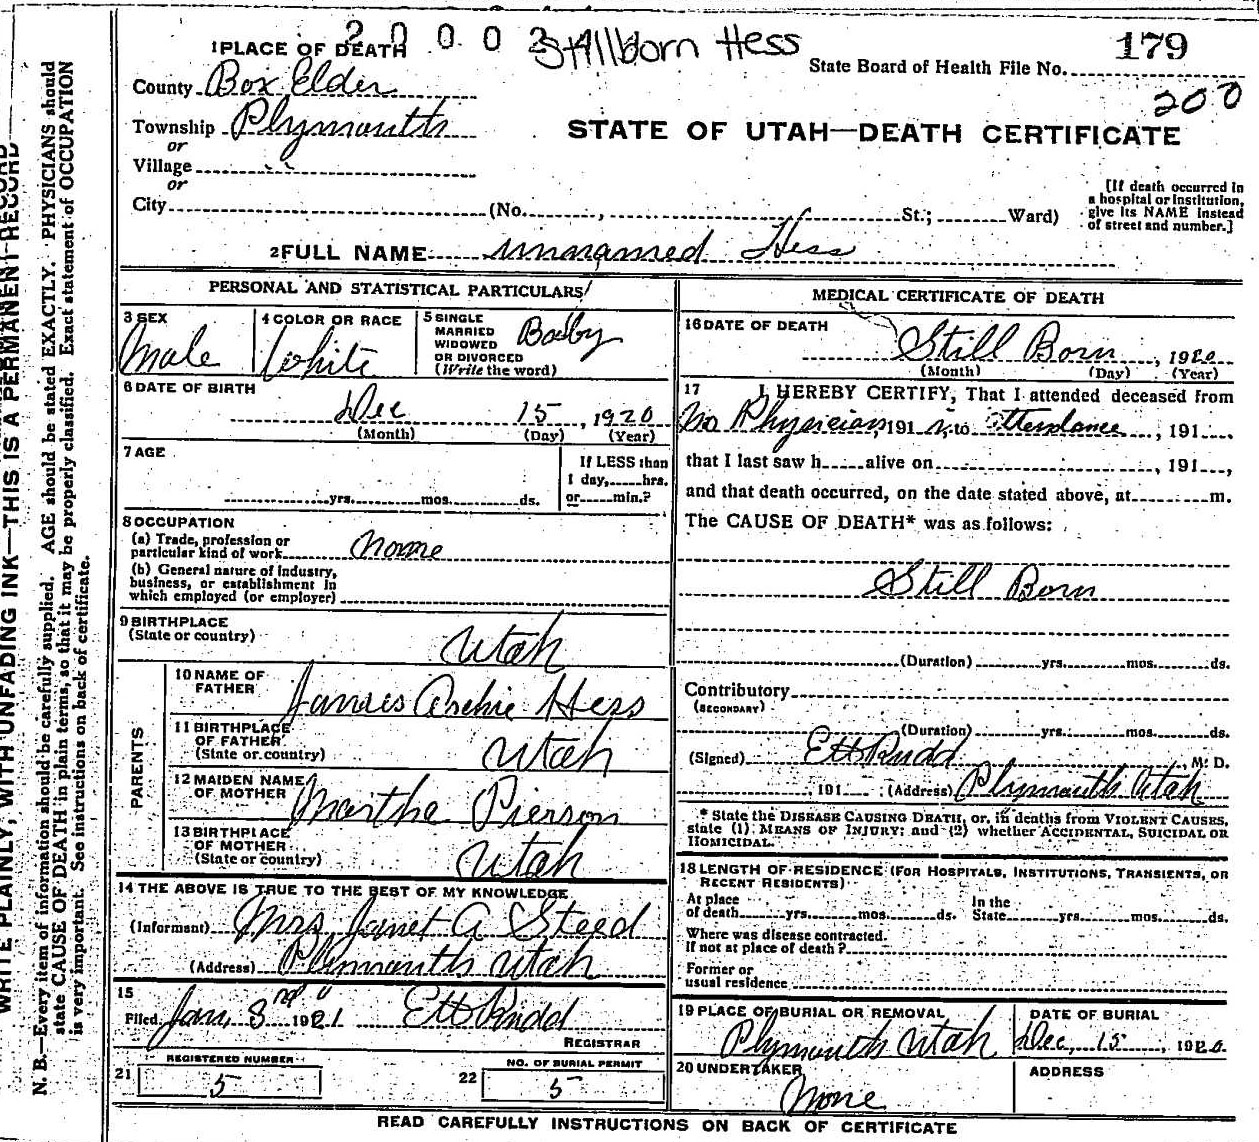 2 0 0 0 2 Stillborn Hess
1 PLACE OF DEATH
179
State Board of Health File No.
200
County Box Elder
Township Plymouth
or
Village " "
or
City (No. , St.; Ward)
STATE OF UTAH—DEATH CERTIFICATE
[If death occurred in
a hospital or institution,
give its NAME instead
of street and number.]
2 FULL NAME unnamed Hess
PERSONAL AND STATISTICAL PARTICULARS
3 SEX Male
4 COLOR OR RACE White
5 SINGLE
MARRIED
WIDOWED
OR DIVORCED
(Write the word) Baby
6 DATE OF BIRTH
Dec 15, 1920
(Month) (Day) (Year)
7 AGE
yrs. mos. ds.
If LESS than
1 day, hrs.
or min.?
8 OCCUPATION
(a) Trade, profession or
particular kind of work None
(b) General nature of industry,
business, or establishment in
which employed (or employer)
9 BIRTHPLACE
(State or country) Utah
PARENTS
10 NAME OF
FATHER James Archie Hess
11 BIRTHPLACE
OF FATHER
(State or country) Utah
12 MAIDEN NAME
OF MOTHER Martha Pierson
13 BIRTHPLACE
OF MOTHER
(State or country) Utah
14 THE ABOVE IS TRUE TO THE BEST OF MY KNOWLEDGE
(Informant) Mrs Janet A Steed
(Address) Plymouth Utah
15
Filed Jan. 8 1921
REGISTRAR
21 REGISTERED NUMBER
5
22 NO. OF BURIAL PERMIT
5
MEDICAL CERTIFICATE OF DEATH
16 DATE OF DEATH
Still Born, 1920
(Month) (Day) (Year)
17 I HEREBY CERTIFY, That I attended deceased from
No Physician, 191 in, to attendance, 191 ,
that I last saw h alive on , 191 ,
and that death occurred, on the date stated above, at m.
The CAUSE OF DEATH* was as follows:
Still Born
(Duration) yrs. mos. ds.
Contributory
(SECONDARY)
(Duration) yrs. mos. ds.
(Signed) Rudd, M. D.
, 191 (Address) Plymouth Utah
* State the DISEASE CAUSING DEATH, or, in deaths from VIOLENT CAUSES,
state (1) MEANS OF INJURY; and (2) whether ACCIDENTAL, SUICIDAL OR
HOMICIDAL.
18 LENGTH OF RESIDENCE (FOR HOSPITALS, INSTITUTIONS, TRANSIENTS, OR
RECENT RESIDENTS)
At place
of death yrs. mos. ds.
In the
State yrs. mos. ds.
Where was disease contracted.
If not at place of death?
Former or
usual residence
19 PLACE OF BURIAL OR REMOVAL
Plymouth Utah
DATE OF BURIAL
Dec, 15, 1920
20 UNDERTAKER
None
ADDRESS
READ CAREFULLY INSTRUCTIONS ON BACK OF CERTIFICATE
WRITE PLAINLY, WITH UNFADING INK—THIS IS A PERMANENT RECORD
N. B.—Every item of information should be carefully supplied. AGE should be stated EXACTLY. PHYSICIANS should
state CAUSE OF DEATH in plain terms, so that it may be properly classified. Exact statement of OCCUPATION
is very important. See instructions on back of certificate.